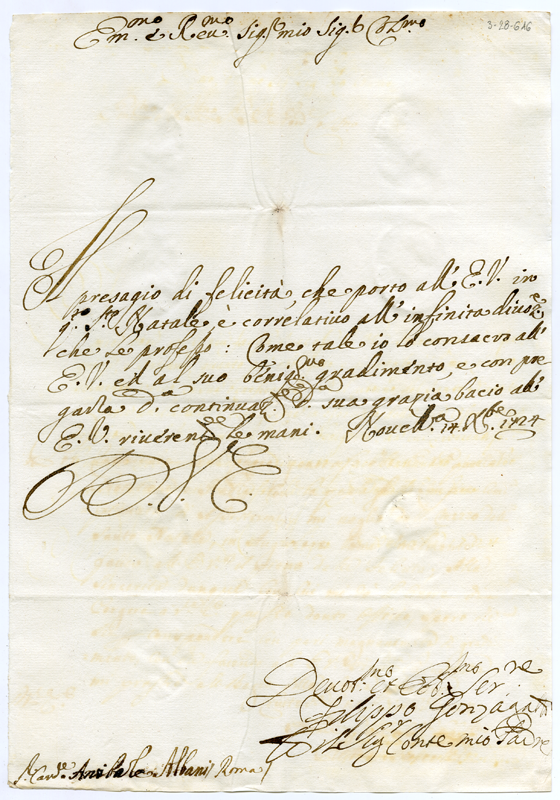 Em.mo e Reu.mo Sig.r mio Sig.r Col.mo
3-28-616
Il
presagio di felicità, che porto all' E. V. in
q.to S.to Natale, è correlativo all' infinita diuoz.e
che le professo: Come tale io lo consacro all'
E. V. ed al suo benig.mo gradimento, e con pre
garla d.a continuaz.e d.a sua grazia bacio all'
E. V. riueren.te le mani. Nouell.a 14. Xbre 1724
D. V. E.
Deuot.mo et Obb.mo Ser.re
Filippo Gonzaga
Sig.r Conte mio Padre
S.r Car.le Anibale Albani Roma